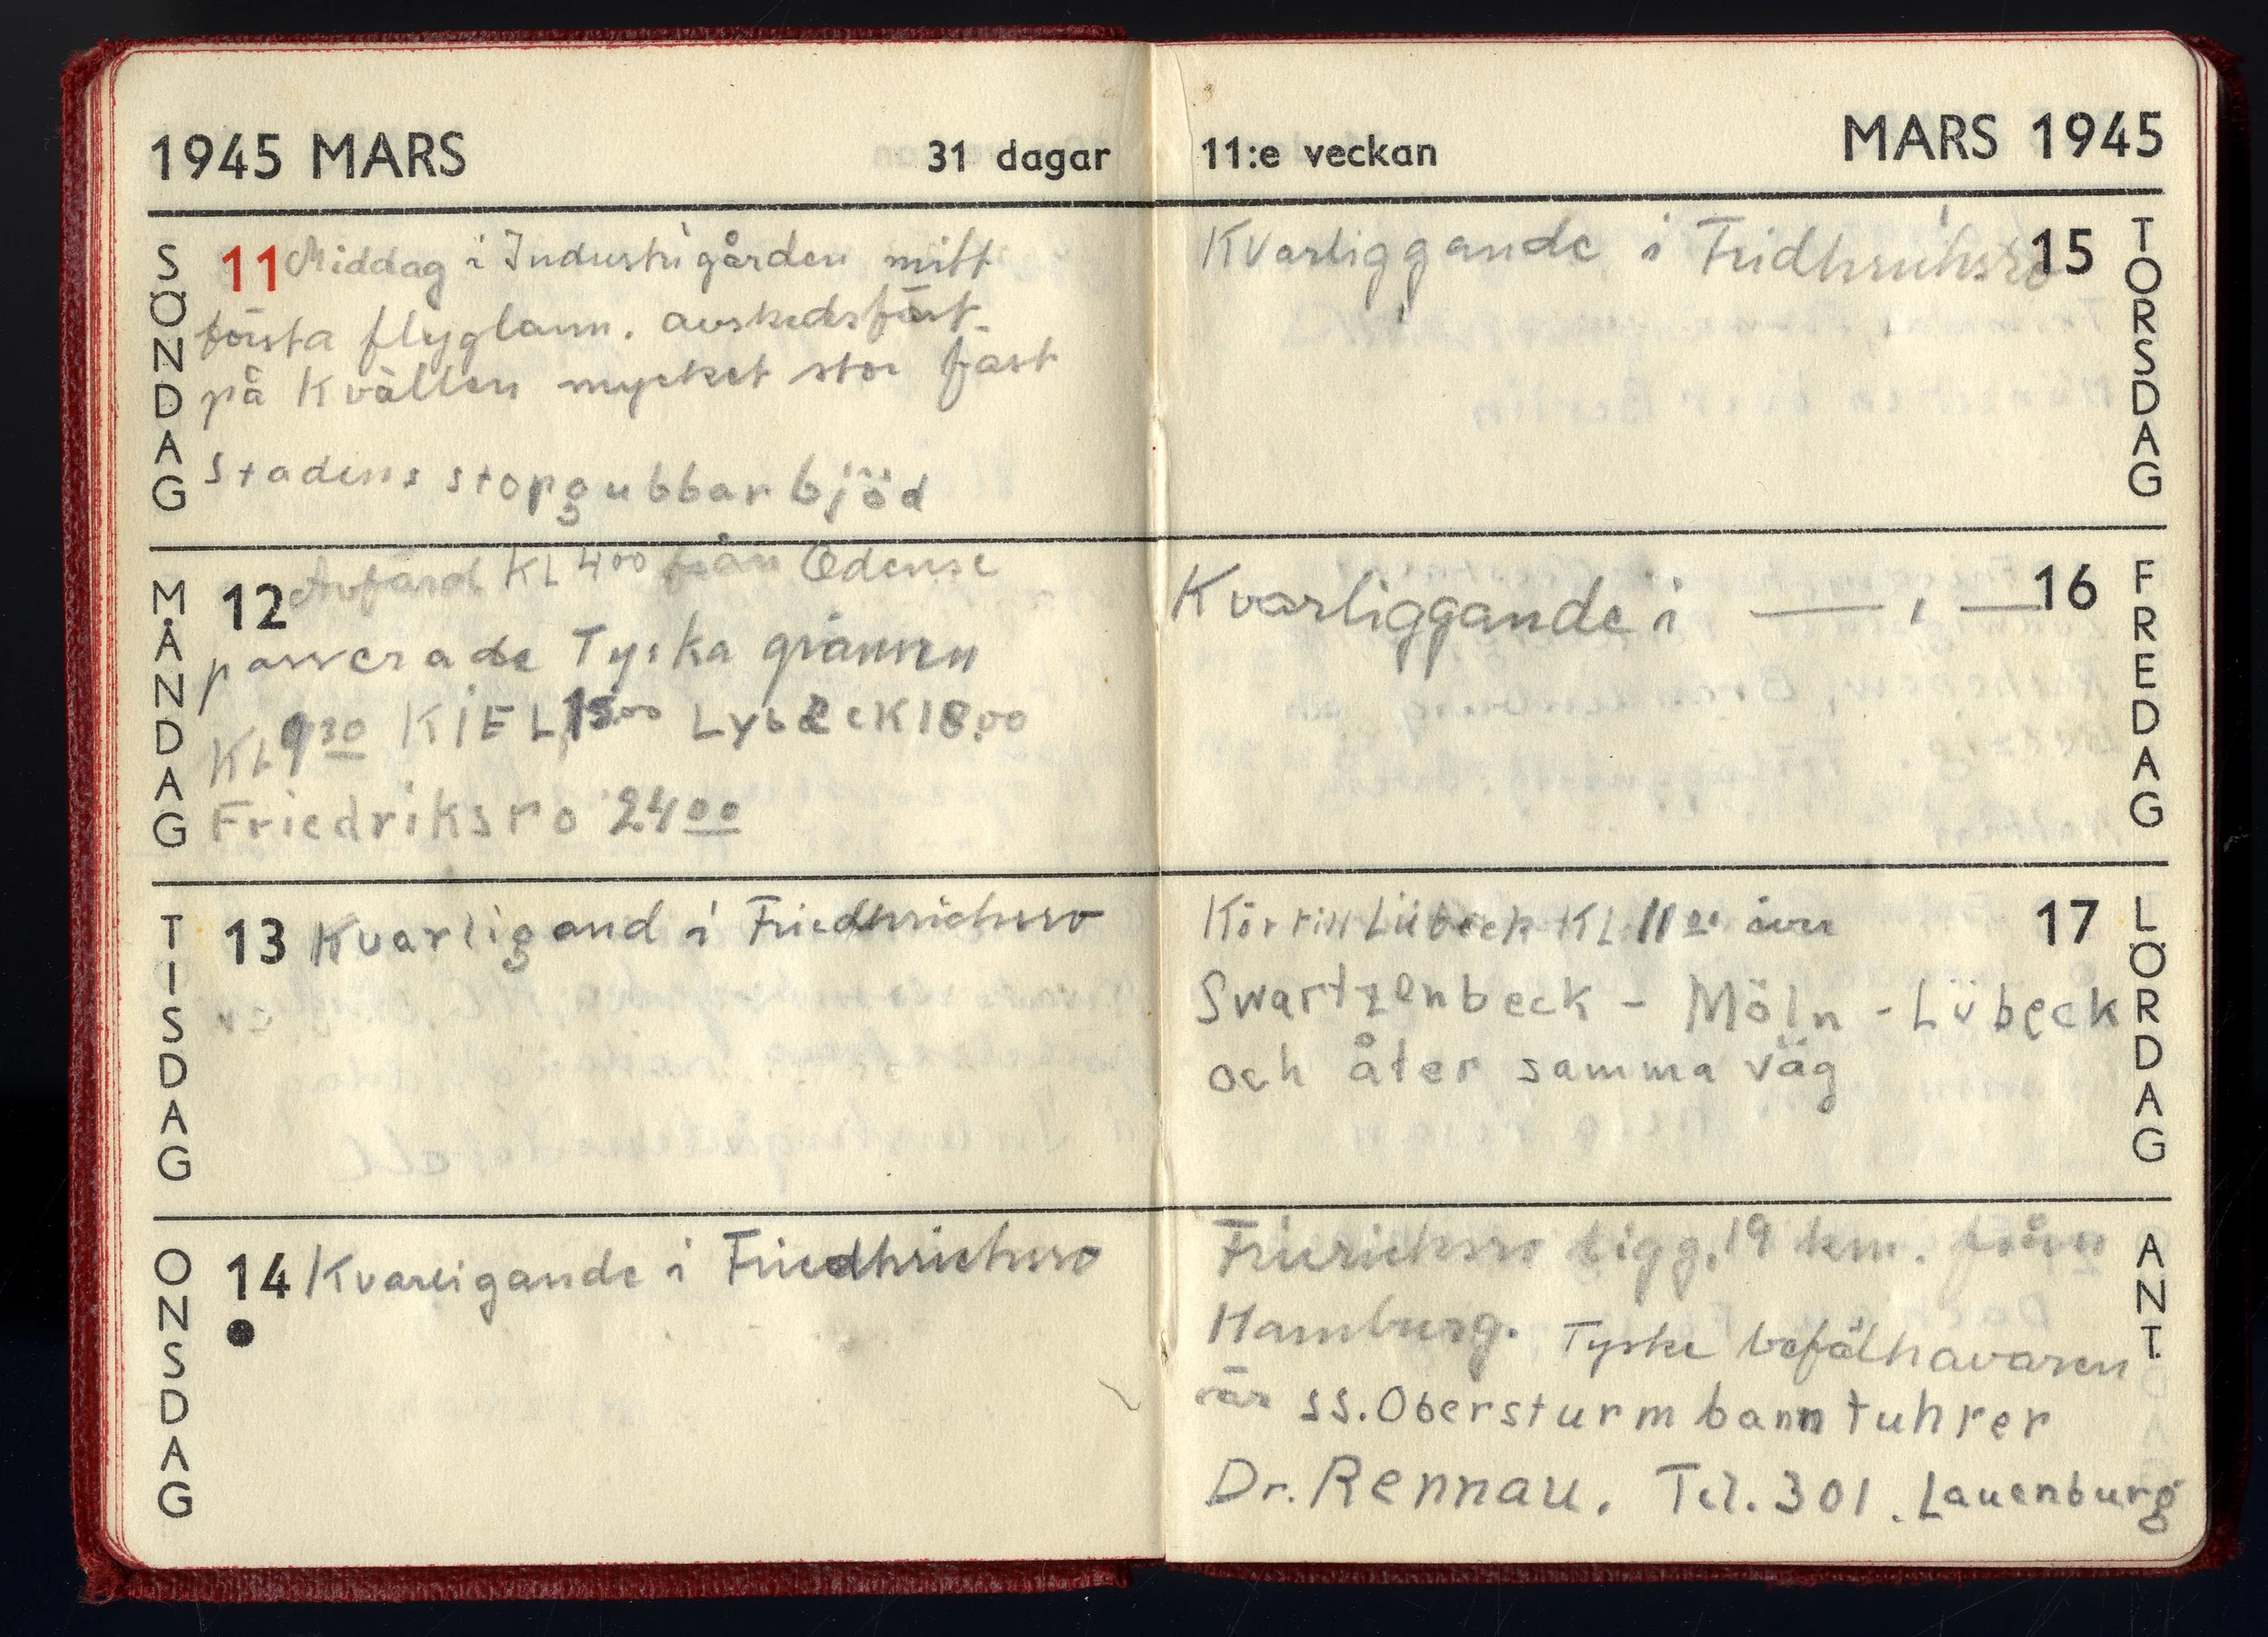 1945 MARS 31 dagar
SÖNDAG
11 Middag i Industrigården mitt
första flyglarm. avskedsfäst.
på Kvällen mycket stor fäst
Stadens stopgubbar bjöd
MÅNDAG
12 Avfärd KL 4⁰⁰ från Odense
passerade Tyska gränsen
KL 9³⁰ KIEL 15⁰⁰ Lybeck 18.00
Friedriksro 24⁰⁰
TISDAG
13 Kvarligand i Friedhrichsro
ONSDAG
14 Kvarligande i Friedhrichsro
11:e veckan MARS 1945
Kvarliggande i Fridhrichsro 15
TORSDAG
Kvarliggande i — , — 16
FREDAG
Kör till Lübeck KL 11⁰⁰ över 17
Swartzenbeck - Möln - Lübeck
och åter samma väg
LÖRDAG
Frierichsro ligg. 19 km. från
Hamburg. Tyske befälhavaren
är SS. Obersturmbanntuhrer
Dr. Rennau. Tel. 301. Lauenburg
ANT.